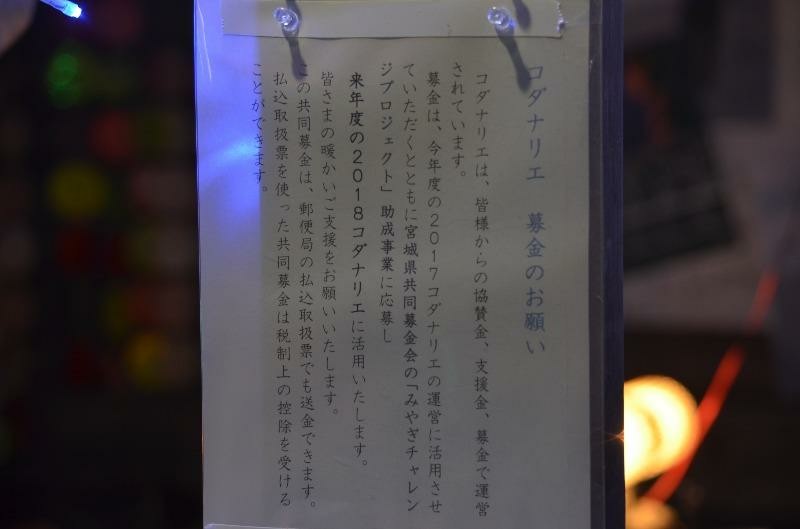 コダナリエ　募金のお願い
コダナリエは、皆様からの協賛金、支援金、募金で運営
されています。
募金は、今年度の２０１７コダナリエの運営に活用させ
ていただくとともに宮城県共同募金会の「みやぎチャレン
ジプロジェクト」助成事業に応募し
来年度の２０１８コダナリエに活用いたします。
皆さまの暖かいご支援をお願いいたします。
この共同募金は、郵便局の払込取扱票でも送金できます。
払込取扱票を使った共同募金は税制上の控除を受ける
ことができます。